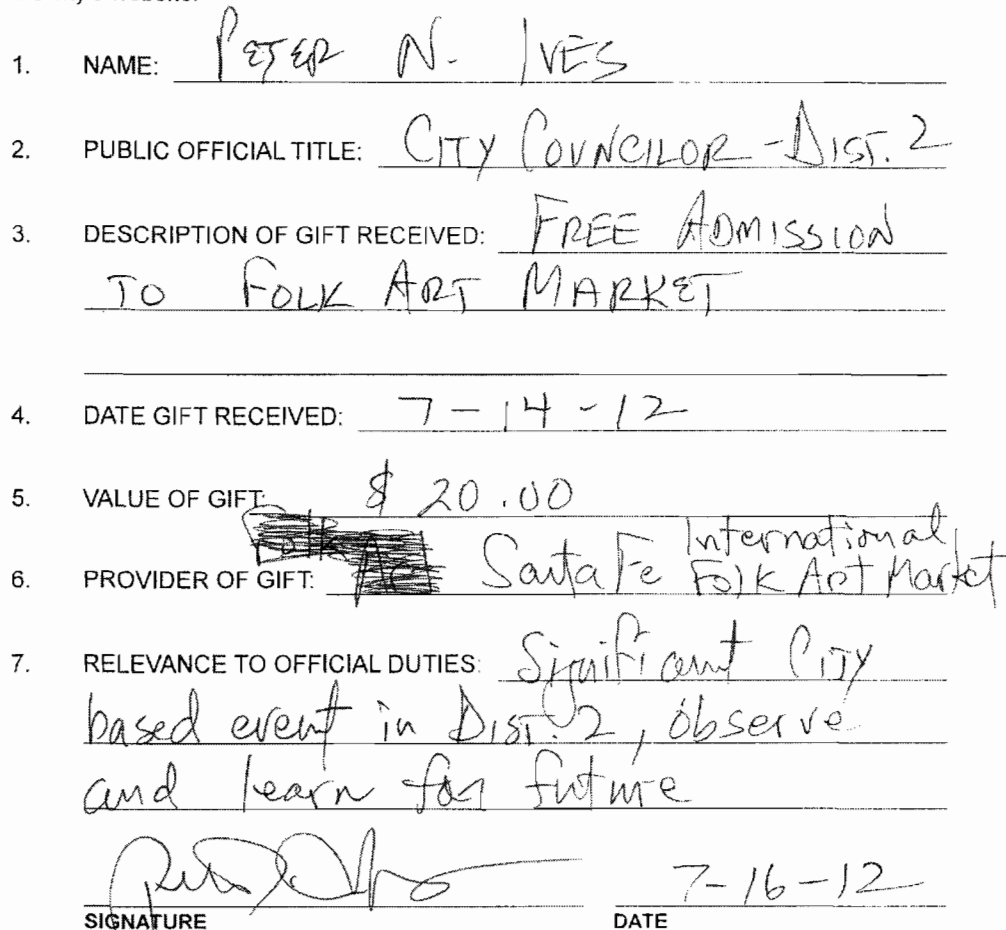 1. NAME: PETER N. IVES
2. PUBLIC OFFICIAL TITLE: CITY COUNCILOR - DIST. 2
3. DESCRIPTION OF GIFT RECEIVED: FREE ADMISSION
TO FOLK ART MARKET
4. DATE GIFT RECEIVED: 7-14-12
5. VALUE OF GIFT: $ 20.00
6. PROVIDER OF GIFT: Santa Fe International Folk Art Market
7. RELEVANCE TO OFFICIAL DUTIES: Significant CITY
based event in DIST. 2, observe
and learn for future
7-16-12
SIGNATURE DATE